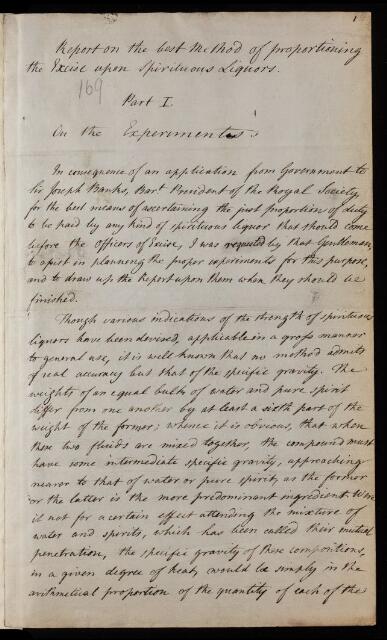 1
Report on the best Method of proportioning
the Excise upon Spirituous Liquors.
169
Part I.
On the Experiments
In consequence of an application from Government to
Sir Joseph Banks, Bart. President of the Royal Society,
for the best means of ascertaining the just proportion of duty
to be paid by any kind of spirituous liquor that should come
before the Officers of Excise, I was requested by that Gentleman,
to assist in planning the proper experiments for this purpose,
and to draw up the Report upon them when they should be
finished.
Though various indications of the strength of spirituous
liquors have been devised, applicable in a gross manner
to general use, it is well known that no method admits
of real accuracy but that of the specific gravity. The
weights of an equal bulk of water and pure spirit
differ from one another by at least a sixth part of the
weight of the former; whence it is obvious, that when
these two fluids are mixed together, the compound must
have some intermediate specific gravity, approaching
nearer to that of water or pure spirit, as the former
or the latter is the more predominant ingredient. Were
it not for a certain effect attending the mixture of
water and spirits, which has been called their mutual
penetration, the specific gravity of these compositions,
in a given degree of heat, would be simply in the
arithmetical proportion of the quantity of each of the